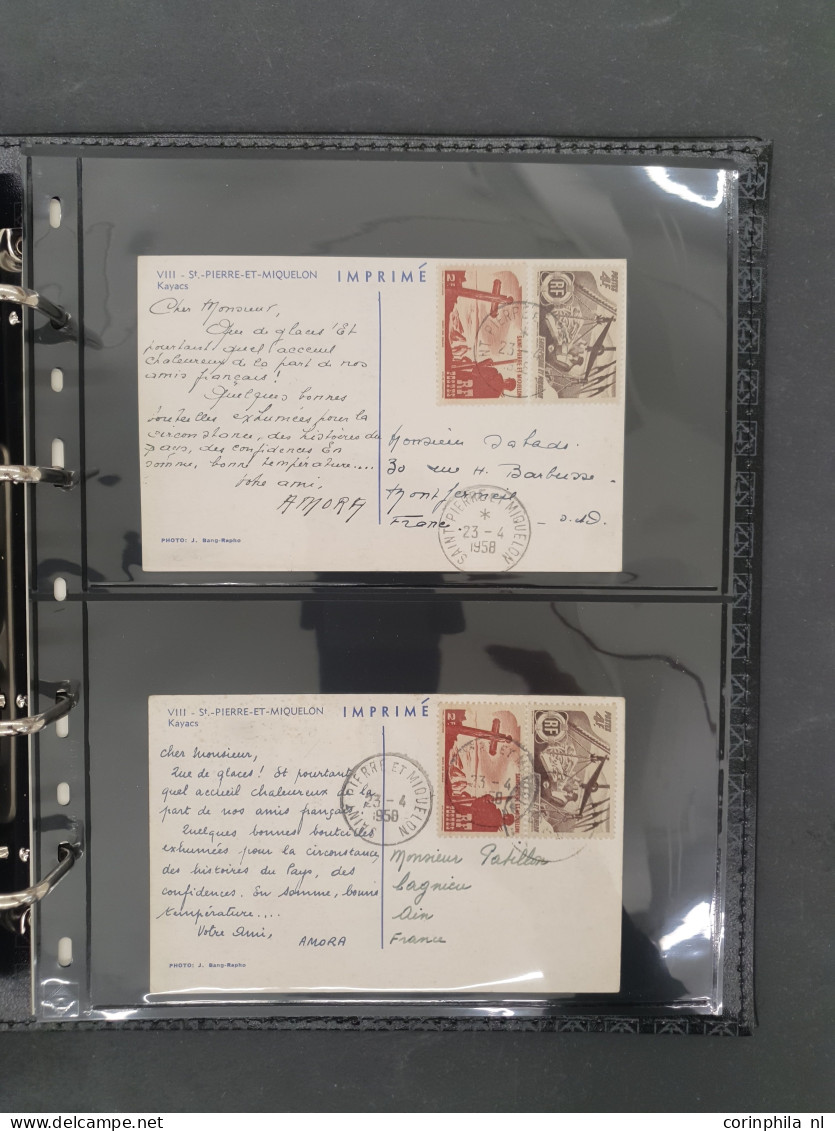 VIII - St.-PIERRE-ET-MIQUELON IMPRIMÉ
Kayacs
Cher Monsieur,
Que de glaces! Et
pourtant quel accueil
chaleureux de la part de nos
amis français!
Quelques bonnes
bouteilles exhumées pour la
circonstance, des histoires du
pays, des confidences. En
somme, bonne température....
Votre ami,
AMORA
PHOTO: J. Bang-Rapho
2F
4F
POSTES
RF
SAINT PIERRE ET MIQUELON
Monsieur
30 rue H. Barbusse
Montfermeil
France. S.&O.
SAINT-PIERRE ET MIQUELON
23-4
1958
VIII - St.-PIERRE-ET-MIQUELON IMPRIMÉ
Kayacs
Cher Monsieur,
Que de glaces! Et pourtant
quel accueil chaleureux de la
part de nos amis français.
Quelques bonnes bouteilles
exhumées pour la circonstance,
des histoires du Pays, des
confidences. En somme, bonne
température....
Votre Ami, AMORA
PHOTO: J. Bang-Rapho
2F
4F
POSTES
RF
SAINT PIERRE ET MIQUELON
23-4
1958
Monsieur Patillon
Lagnieu
Ain
France
corinphila nl